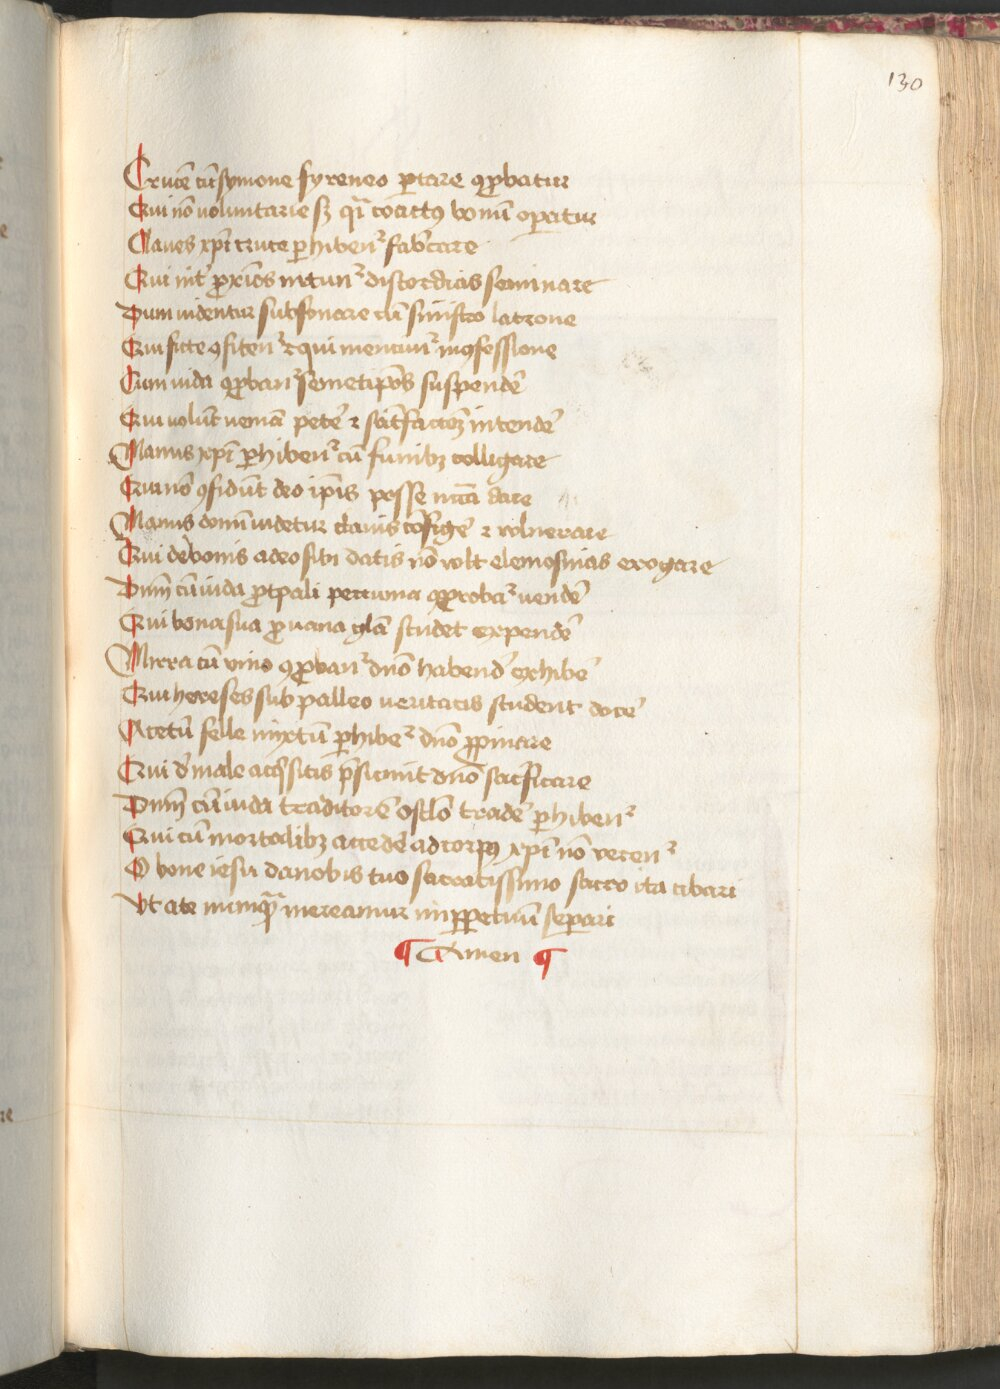 130
Crucē cū symone syreneo ꝑtare ꝯꝓbatur
Qui nō uoluntarie sꝫ q̄i coactꝰ bonū oꝑatur
Claues xp̄i cruce ꝑhibenꝉ fab̾care
Qui int̾ ꝓxīos discordias seminare
Dum uidentur subsonare cū sinistro latrone
Qui ficte ꝯfitenꝉ ⁊ qui menciunꝉ in ꝯfessione
Cum iuda ꝯꝓbanꝉ semetip̄os suspende᷒
Qui nolūt ueniā pete᷒ ⁊ satisfactōꝫ intende᷒
Manus xp̄i ꝑhibenꝉ cū funibꝫ colligare
Qui nō ꝯfidūt deo ip̄is posse dare
Manus domini uidetur clauis ꝯfige᷒ ⁊ volnerare
Qui de bonis a deo sibi datis nō volt elemosinas erogare
Dnm̄ cū iuda ꝓ tp̄ali peccunia ꝯꝓbatꝉ uende᷒
Qui bona sua ꝓ uana gl̄a studet expende᷒
Mirra cū vino ꝯꝓbanꝉ dn̄o habend̾ exhibe᷒
Qui hereses sub palleo ueritatis student doce᷒
Acetū felle mixtū ꝑhibeꝉ dn̄o ꝓpinare
Qui d̾ male acq̄sitis p̄sumit dn̄o sacrificare
Dnm̄ cū iuda traditorē trade᷒ ꝑhibenꝉ
Qui cū mortalibꝫ accede᷒ ad corpꝰ xp̄i nō verenꝉ
O bone iesu da nobis tuo sacratissimo sacro ita cibari
Vt a te nunqͣ mereamur in ꝑpetuū seꝑari
¶ Amen ¶